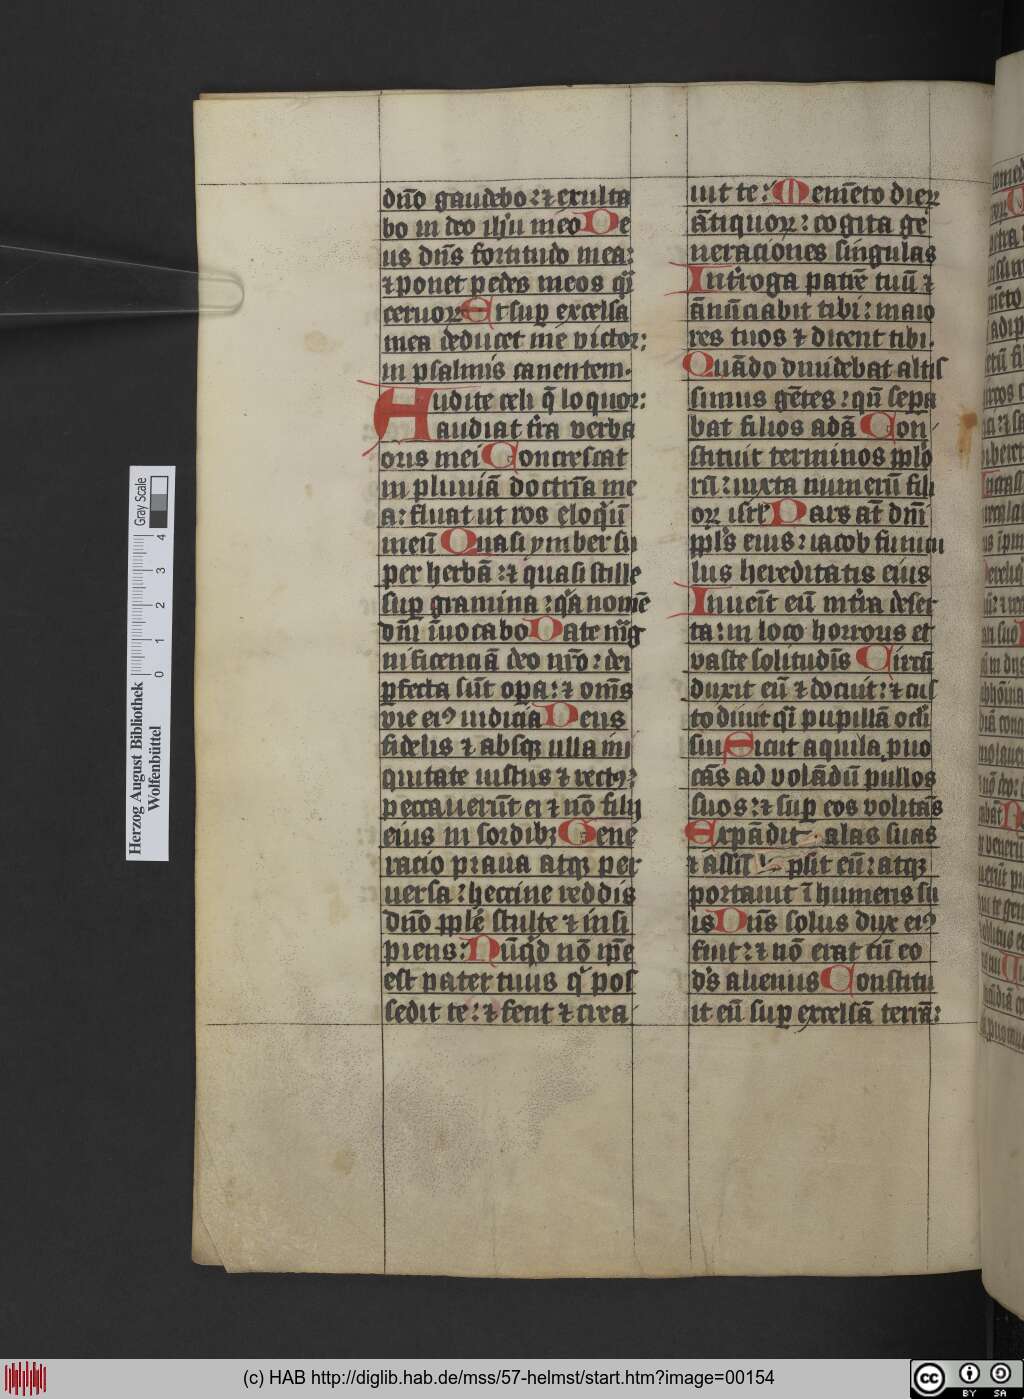 dn̄o gaudebo: ⁊ exulta
bo in deo ihū meo De
us dn̄s fortitudo mea:
⁊ ponet pedes meos qͥ
ceruoꝝ Et suꝑ excelsa
mea deducet me victor:
in psalmis canentem.
Audite celi q̄ loquor:
audiat tr̄a verba
oris mei Concrescat
in pluuiā doctrīa me
a: fluat ut ros eloqͥū
meū Quasi ymber su
per herbā: ⁊ quasi stille
suꝑ gramina: qͣa nomē
dn̄i īuocabo Date mͣg
nificenciā deo nr̄o: dei
ꝑfecta sūt oꝑa: ⁊ om̄s
vie eiꝰ iudicia Deus
fidelis ⁊ absqꝫ ulla ini
quitate iustus ⁊ rectꝰ:
peccauerūt ei ⁊ nō filij
eius in sordibꝫ Gene
racio praua atqꝫ per
uersa: heccine reddis
dn̄o pple stulte ⁊ insi
piens: Nūqͥd nō ip̄e
est pater tuus qͥ pos
sedit te: ⁊ fecit ⁊ crea
uit te: Memēto dieꝝ
ātiquoꝝ: cogita ge
neraciones singulas
Int̄roga patrē tuū ⁊
ānūciabit tibi: maio
res tuos ⁊ dicent tibi.
Quādo diuidebat altis
simus gētes: qn̄ sepa
bat filios adā Con
stituit terminos pplo
rū: iuxta numerū fili
oꝝ isrl̄ Pars aūt dn̄i
ppls eius: iacob funicu
lus hereditatis eius
Inuenīt eū in tr̄a deser
ta: in loco horroris et
vaste solitudīs Circū
duxit eū ⁊ docuit: ⁊ cus
todiuit qͥ pupillā oculi
sui Sicut aquila ꝓuo
cās ad volādū pullos
suos: ⁊ suꝑ eos volitās
Expādit alas suas
⁊ assūpsit eū: atqꝫ
portauit ī humeris su
is Dn̄s solus dux eiꝰ
fuit: ⁊ nō erat cū eo
ds̄ alienus Constitu
it eū suꝑ excelsā terrā:
Herzog August Bibliothek
Wolfenbüttel
0 1 2 3 4
Gray Scale
(c) HAB http://diglib.hab.de/mss/57-helmst/start.htm?image=00154
cc BY SA